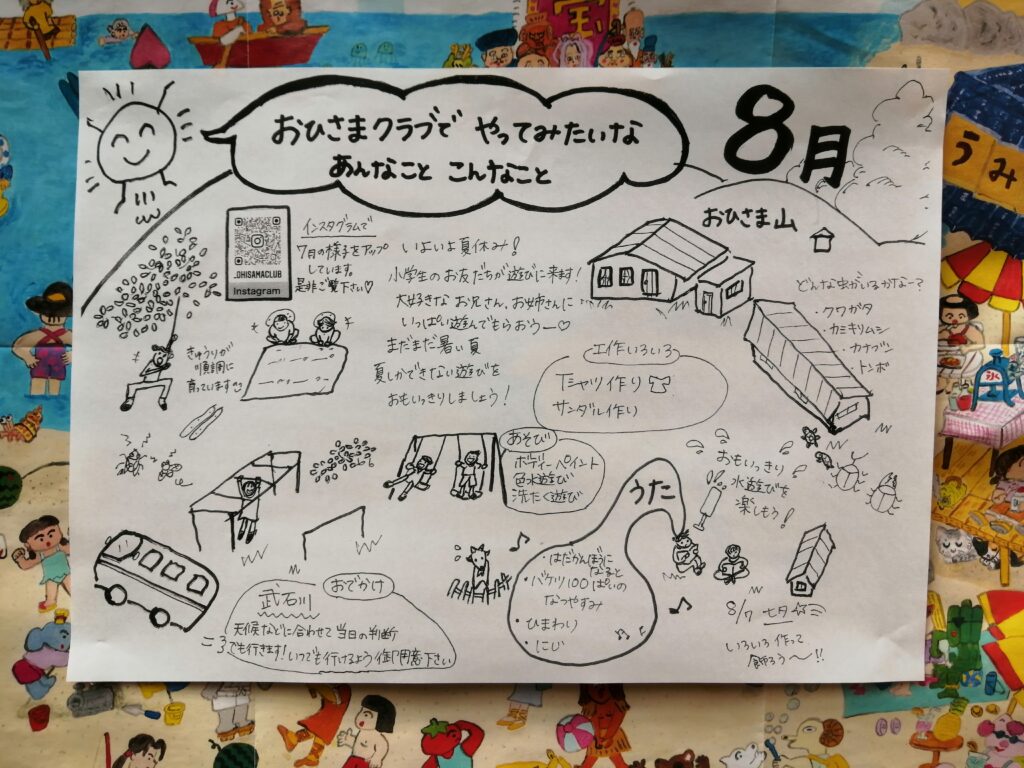 おひさまクラブで やってみたいな
あんなこと こんなこと
8月
うみ
おひさま山
.OHISAMACLUB
Instagram
インスタグラムで
7月の様子をアップ
しています。
是非ご覧下さい♡
いよいよ夏休み!
小学生のお友だちが遊びに来ます!
大好きな お兄さん、お姉さんに
いっぱい遊んでもらおうー♡
まだまだ暑い夏
夏しかできない遊びを
おもいっきりしましょう!
どんな虫がいるかな〜?
・クワガタ
・カミキリムシ
・カナブン
・トンボ
きゅうりが
順調に
育っています
工作いろいろ
Tシャツ作り
サンダル作り
あそび
ボディーペイント
色水遊び
洗たく遊び
おもいっきり
水遊びを
楽しもう!
うた
・はだかんぼうに
なると
・バケツ100ぱいの
なつやすみ
・ひまわり
・にじ
おでかけ
武石川
天候などに合わせて 当日の判断
でも行きます!いつでも行けるよう御用意下さい
8/7 七夕☆彡
いろいろ作って
飾ろう〜!!
氷